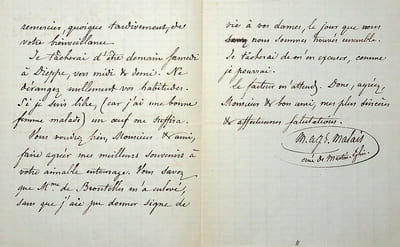 remercier, quoique tardivement, de
votre bienveillance.
Je tâcherai d'être demain samedi
à Dieppe, vers midi & demi. Ne
dérangez nullement vos habitudes.
Si je suis libre, (car j'ai une bonne
femme malade) un œuf me suffira.
Vous voudrez bien, Monsieur & ami,
faire agréer mes meilleurs souvenirs à
votre aimable entourage. Vous savez
que Mme de Broutelles m'a enlevé,
sans que j'aie pu donner signe de
vie à vos dames, le jour que nous
nous sommes trouvés ensemble.
Je tâcherai de m'en excuser, comme
je pourrai.
Le facteur m'attend. Donc, agréez,
Monsieur & bon ami, mes plus sincères
& affectueuses salutations.
Malais
curé de